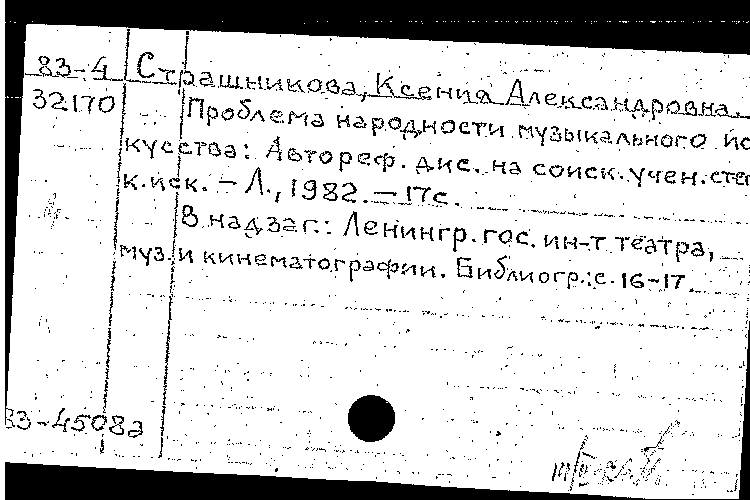 83-4 Страшникова, Ксения Александровна.
32170 Проблема народности музыкального ис
кусства: Автореф. дис. на соиск. учен. степ
к. иск. – Л., 1982. – 17с.
В надзаг.: Ленингр. гос. ин-т театра,
муз. и кинематографии. Библиогр.: с. 16-17.
83-45082